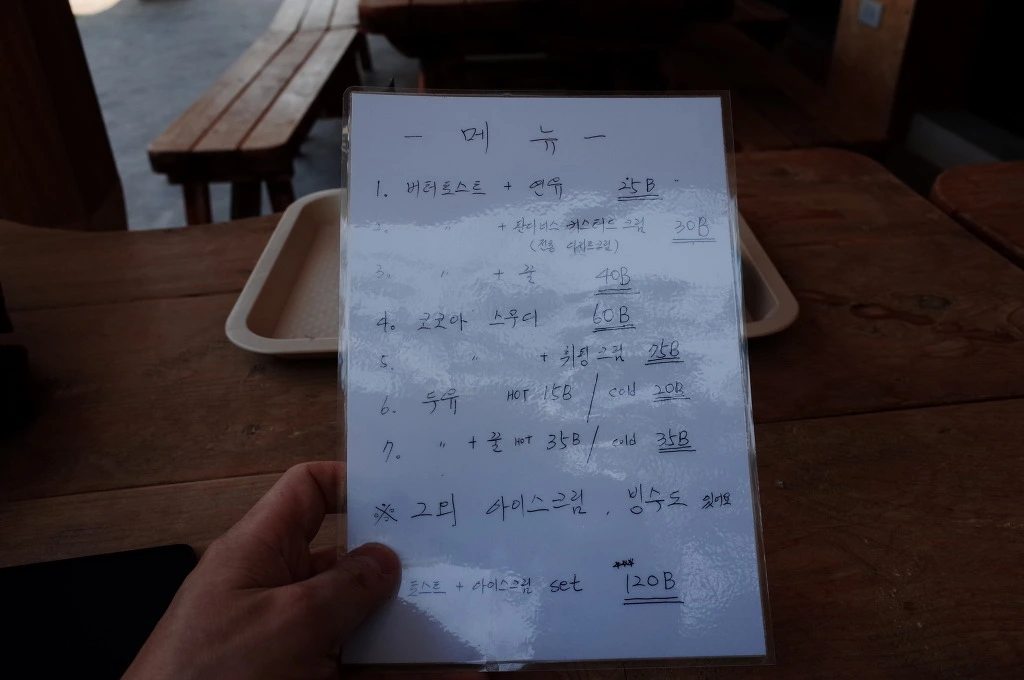 - 메 뉴 -
1. 버터토스트 + 연유 25B
2. 〃 + 판다너스 커스터드 크림 30B
(전통 디저트크림)
3. 〃 + 꿀 40B
4. 코코아 스무디 60B
5. 〃 + 휘핑크림 75B
6. 두유 HOT 15B / cold 20B
7. 〃 + 꿀 HOT 35B / cold 35B
※ 그외 아이스크림, 빙수도 있어요
토스트 + 아이스크림 set 120B